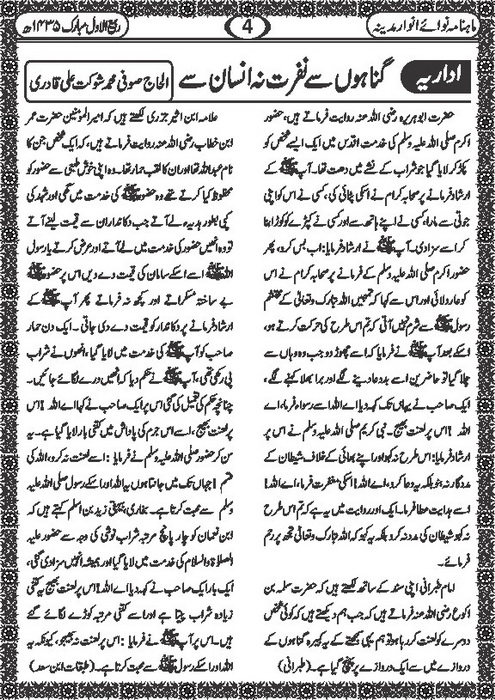 ماہنامہ نوائے انوار مدینہ
4
ربیع الاول مبارک ۱۴۳۵ھ
اداریہ
گناہوں سے نفرت نہ انسان سے
الحاج صوفی محمد شوکت علی قادری
حضرت ابو ہریرہ رضی اللہ عنہ روایت فرماتے ہیں، حضور
اکرم صلی اللہ علیہ وسلم کی خدمت اقدس میں ایک ایسے شخص کو
پکڑ کر لایا گیا جو شراب کے نشے میں دھت تھا۔ آپ ﷺ کے
ارشاد فرمانے پر صحابہ کرام نے اسکی پٹائی کی، کسی نے اس کو اپنی
جوتی سے مارا، کسی نے اپنے ہاتھ سے اور کسی نے کپڑے کو کوڑا بنا
کر اسے سزا دی۔ آپ ﷺ نے ارشاد فرمایا: اب بس کرو، پھر
حضور اکرم صلی اللہ علیہ وسلم کے فرمانے پر صحابہ کرام نے اس
کو عار دلائی اور اس سے کہا کہ تمہیں اللہ تبارک وتعالیٰ کے
رسول ﷺ سے شرم نہیں آتی کہ تم اس طرح کی حرکت کرتے ہو،
اسکے بعد آپ ﷺ نے فرمایا کہ اسے چھوڑ دو جب وہ وہاں سے
چلا گیا تو حاضرین اسے بددعا دینے لگے اور برا بھلا کہنے لگے،
ایک صاحب نے یہاں تک کہہ دیا اے اللہ اسے رسوا فرما، اے
اللہ! اس پر لعنت بھیج۔ نبی کریم صلی اللہ علیہ وسلم نے اس پر
ارشاد فرمایا: اس طرح نہ کہو اور اپنے بھائی کے خلاف شیطان کے
مددگار نہ ہو بلکہ یہ دعا کرو، اے اللہ! اسکی مغفرت فرما، اے اللہ!
اسے ہدایت عطا فرما۔ ایک اور روایت میں یہ ہے کہ تم اس طرح
نہ کہو شیطان کی مدد نہ کرو بلکہ یہ کہو کہ اللہ تبارک وتعالیٰ تجھ پر رحم
فرمائے۔
امام طبرانی اپنی سند کے ساتھ لکھتے ہیں کہ حضرت سلمہ بن
اکوع رضی اللہ عنہ فرماتے ہیں کہ جب ہم دیکھتے ہیں کہ کوئی شخص
دوسرے کو لعنت کر رہا ہو تو ہم یہی سمجھتے کہ یہ کبیرہ گناہوں کے
دروازے میں سے ایک دروازے پر پہنچ گیا ہے۔ (طبرانی)
علامہ ابن اثیر جزری لکھتے ہیں کہ امیر المؤمنین حضرت عمر
ابن خطاب رضی اللہ عنہ روایت فرماتے ہیں، کہ ایک شخص جن کا
نام عبد اللہ تھا اور ان کا لقب حمار تھا۔ وہ اپنی خوش طبعی سے حضور کو
محظوظ کیا کرتے تھے وہ حضور ﷺ کی خدمت میں گھی اور شہد کی
کپی بطور ہدیہ لے آتے جب دکاندار ان سے قیمت لینے آتے
تو وہ انھیں حضور کی خدمت میں لے آتے اور عرض کرتے یا رسول
اللہ ﷺ اسے اسکے سامان کی قیمت دے دیں اس پر حضور ﷺ
بے ساختہ مسکراتے اور کچھ نہ فرماتے پھر آپ ﷺ کے
ارشاد فرمانے پر دکاندار کو قیمت دے دی جاتی۔ ایک دن حمار
صاحب کو آپ ﷺ کی خدمت میں لایا گیا، انھوں نے شراب
پی رکھی تھی، آپ ﷺ نے حکم دیا کہ انھیں درے لگائے جائیں۔
چنانچہ حکم کی تعمیل کی گئی اس پر ایک صاحب نے کہا اے اللہ! اس پر
لعنت بھیج، اسے اس جرم کی پاداش میں کتنی بار لایا گیا ہے۔ یہ
سن کر حضور صلی اللہ علیہ وسلم نے فرمایا: اسے لعنت نہ کرو، اللہ کی
قسم! جہاں تک میں جانتا ہوں یہ اللہ اور اسکے رسول صلی اللہ علیہ
وسلم سے محبت کرتا ہے۔ بخاری، بیہقی زید بن اسلم کہتے ہیں کہ
ابن النعمان کو چار پانچ مرتبہ شراب نوشی کی وجہ سے حضور علیہ
الصلوٰۃ والسلام کی خدمت میں لایا گیا اور ہمیشہ انھیں سزا دی گئی،
ایک بار ایک صاحب نے کہہ دیا اے اللہ! اس پر لعنت بھیج یہ کتنی
زیادہ شراب پیتا ہے اور اسے کتنی مرتبہ کوڑے لگائے گئے
ہیں۔ اس پر آپ ﷺ نے فرمایا: اس پر لعنت نہ بھیجو، کیونکہ یہ
اللہ اور اسکے رسول ﷺ سے محبت کرتا ہے۔ (طبقات ابن سعد)